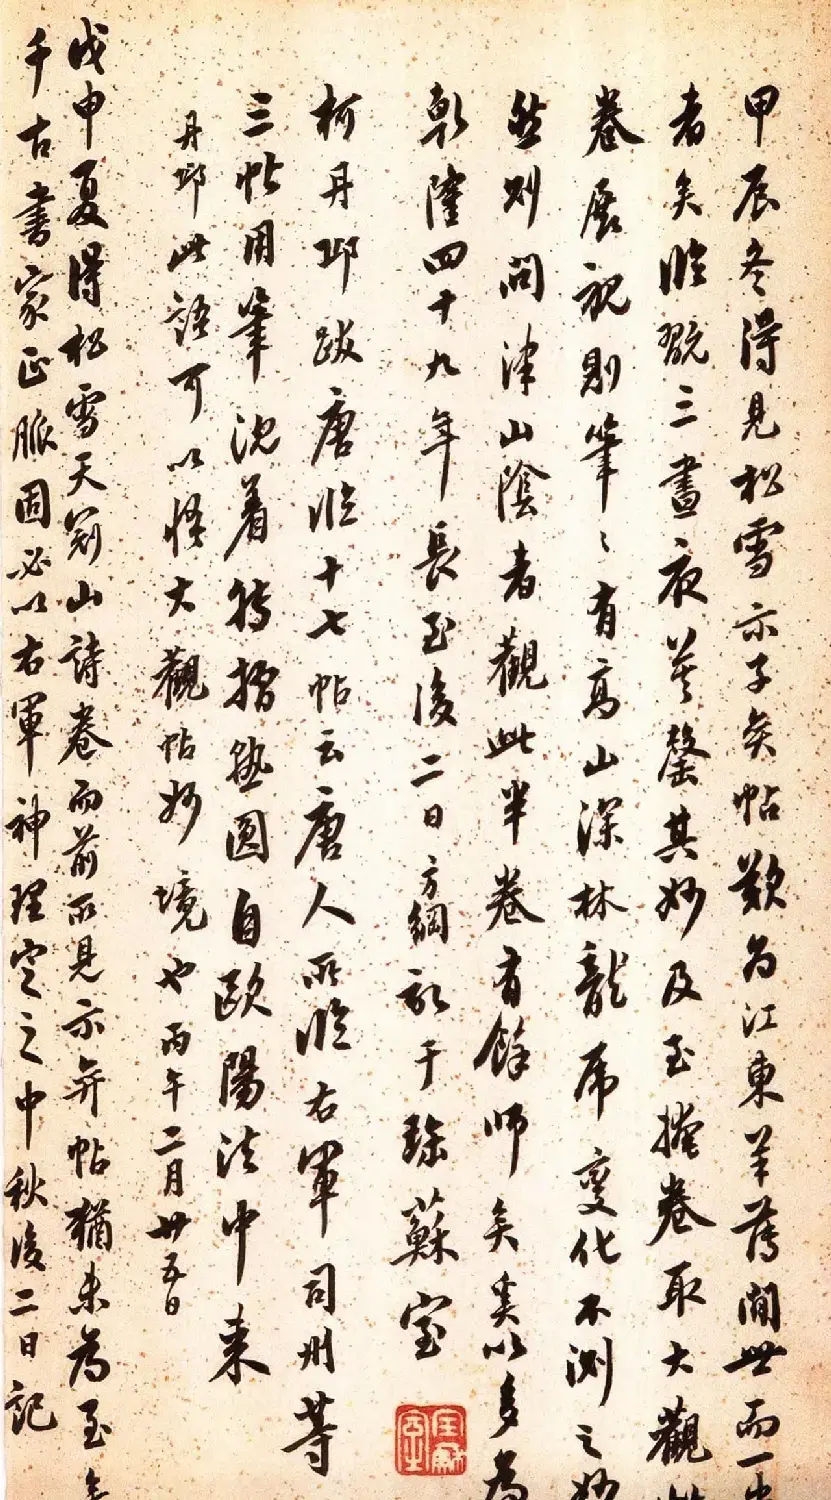 甲辰冬得見松雪示子矦帖歎為江東羊薄閒世而一出
者矣臨翫三晝夜莫罄其妙及至掩卷取大觀
卷展視則筆〻有高山深林龍虎變化不測之妙
然則問津山陰者觀此半卷有餘師矣奚以多為
乾隆四十九年長至後二日方綱記于珎蘇室
柯丹邱跋唐臨十七帖云唐人所臨右軍司州等
三帖用筆沈着轉摺墊圓自歐陽法中来
丹邱此語可以悟大觀帖妙境也丙午二月廿五日
戊申夏得松雪天冠山詩卷而前所見示弁帖猶未為至
千古書家正脈固必以右軍神理定之中秋後二日記